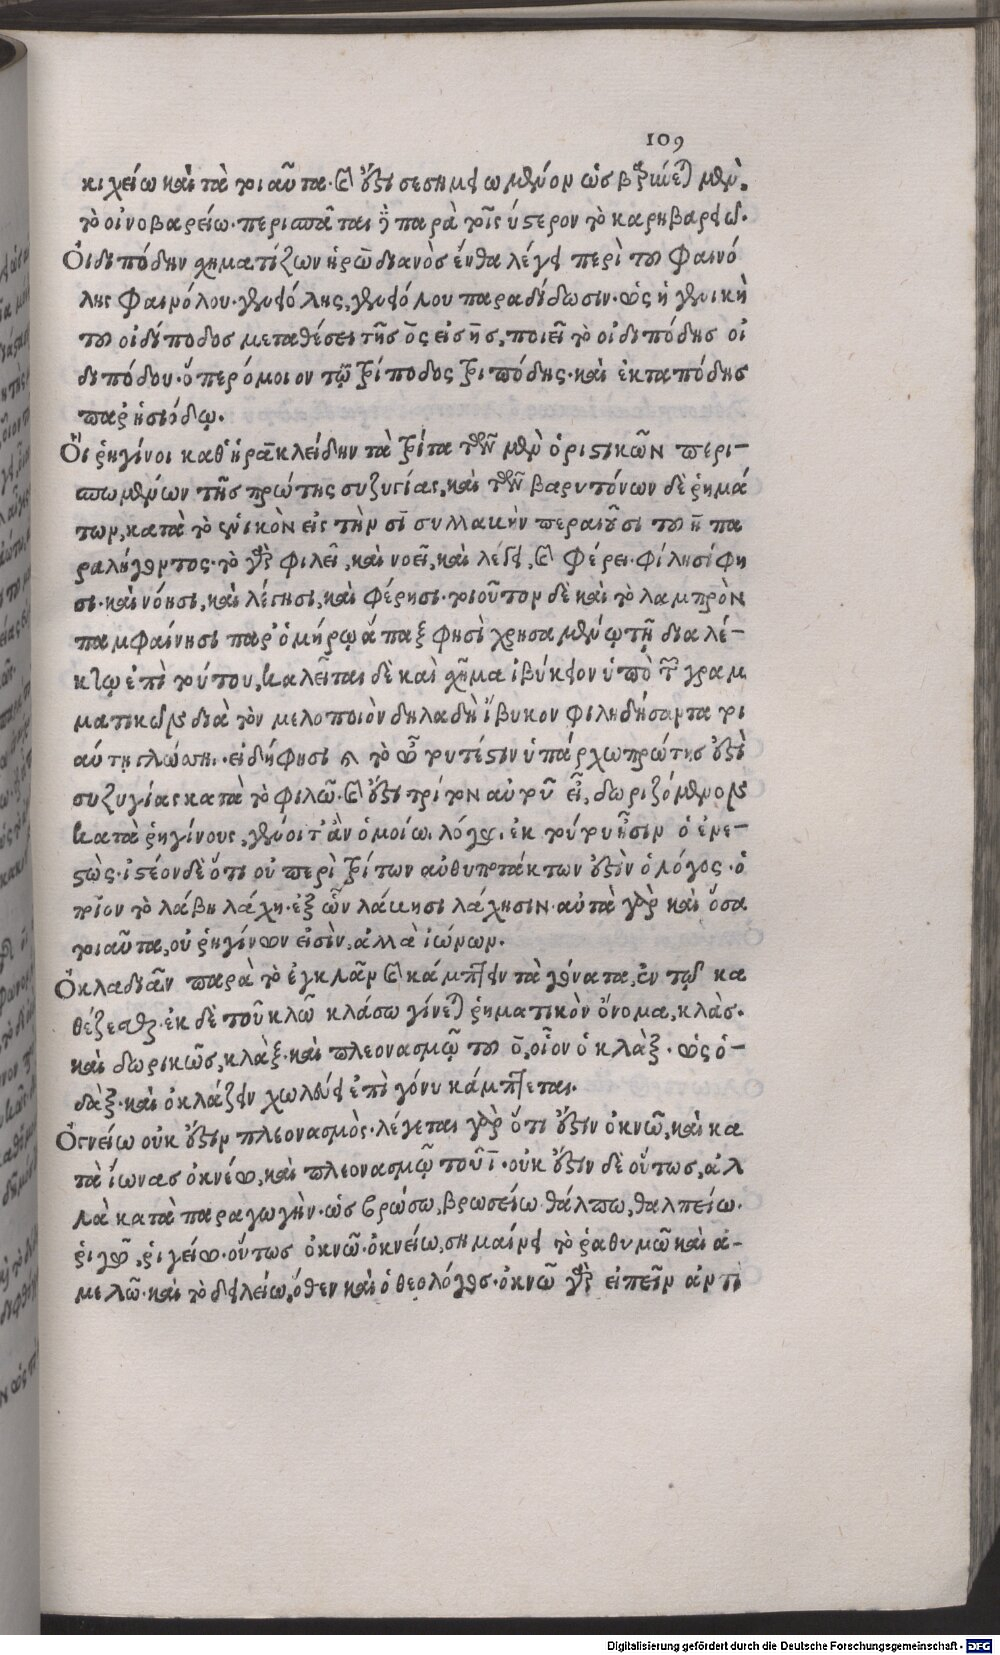 109
κιχείω καὶ τὰ τοιαῦτα. καὶ ἔστι σεσημειωμένον ὡς
τὸ οἰνοβαρείω. περισπᾶται δὲ παρὰ τοῖς ὕστερον τὸ καρηβαρεῖν.
Οἰδιπόδην σχηματίζων ἡρωδιανὸς ἔνθα λέγει περὶ τοῦ Φαινό
λης Φαινόλου. παραδίδωσιν. ὡς ἡ γενικὴ
τοῦ οἰδίποδος μεταθέσει τῆς ος εἰς ης, ποιεῖ τὸ οἰδιπόδης οἰ
διπόδου. ὅπερ ὅμοιον τῷ τρίποδος τριπόδης. καὶ ἑκταπόδης
παρ' ἡσιόδῳ.
Οἱ ῥηγίνοι καθ' ἡρακλείδην τὰ τρίτα τῶν μὲν ὁριστικῶν περι-
σπωμένων τῆς πρώτης συζυγίας, καὶ τῶν βαρυτόνων δὲ ῥημά
των, κατὰ τὸ ἑνικὸν εἰς τὴν σι συλλαβὴν περαιοῦσι τοῦ η πα
ραλήγοντος. τὸ γὰρ φιλεῖ, καὶ νοεῖ, καὶ λέγει, καὶ φέρει. φίλησί φη
σι. καὶ νόησι, καὶ λέγησι, καὶ φέρησι. τοιοῦτον δὲ καὶ τὸ λαμπρὸν
παμφαίνησι παρ' ὁμήρῳ ἅπαξ φησὶ χρησαμένῳ τῇ διαλέ-
κτῳ ἐπὶ τούτου, καλεῖται δὲ καὶ σχῆμα ἰβύκειον ὑπὸ τῶν γραμ
ματικῶν διὰ τὸν μελοποιὸν δηλαδὴ ἴβυκον φιληδήσαντα τοι
αύτῃ γλώσσῃ. εἰ δὴ φησι τὸ τουτέστιν ὑπάρχω πρώτης ἐστὶ
συζυγίας κατὰ τὸ φιλῶ. καὶ ἔστι τρίτον αὐτοῦ εἶ, δωριζόμενον
κατὰ ῥηγίνους, γένοιτ' ἂν ὁμοίῳ λόγῳ. ἐκ τούτου ἦσιν ὁ ἐνε-
στώς. ἰστέον δὲ ὅτι οὐ περὶ τρίτων αὐθυποτάκτων ἐστὶν ὁ λόγος. ὁ
ποῖον τὸ λάβῃ λάχῃ. ἐξ ὧν λάβησι λάχησιν. αὐτὰ γὰρ καὶ ὅσα
τοιαῦτα, οὐ ῥηγίνων εἰσὶν, ἀλλὰ ἰώνων.
Ὀκλαδιᾶν παρὰ τὸ ἐγκλᾶν καὶ κάμπτειν τὰ γόνατα, ἐν τῷ κα
θέζεσθαι. ἐκ δὲ τοῦ κλῶ κλάσω γίνεται ῥηματικὸν ὄνομα, κλάς.
καὶ δωρικῶς, κλάξ. καὶ πλεονασμῷ τοῦ ο, οἷον ὀκλάξ. ὡς ὀ-
δάξ. καὶ ὀκλάζειν χωλεύει ἐπὶ γόνυ κάμπτεται.
Ὀκνείω οὐκ ἔστιν πλεονασμός. λέγεται γὰρ ὅτι ἔστιν ὀκνῶ, καὶ κα
τὰ ἴωνας ὀκνέω, καὶ πλεονασμῷ τοῦ ι. οὐκ ἔστιν δὲ οὕτως, ἀλ
λὰ κατὰ παραγωγήν. ὡς βρώσω, βρωσείω. θάλπω, θαλπείω.
ῥιγῶ, ῥιγείω. οὕτως ὀκνῶ. ὀκνείω, σημαίνει τὸ ῥαθυμῶ καὶ ἀ-
μελῶ. καὶ τὸ δειλείω, ὅθεν καὶ ὁ θεολόγος. ὀκνῶ γὰρ εἰπεῖν ἀντὶ
Digitalisierung gefördert durch die Deutsche Forschungsgemeinschaft - DFG